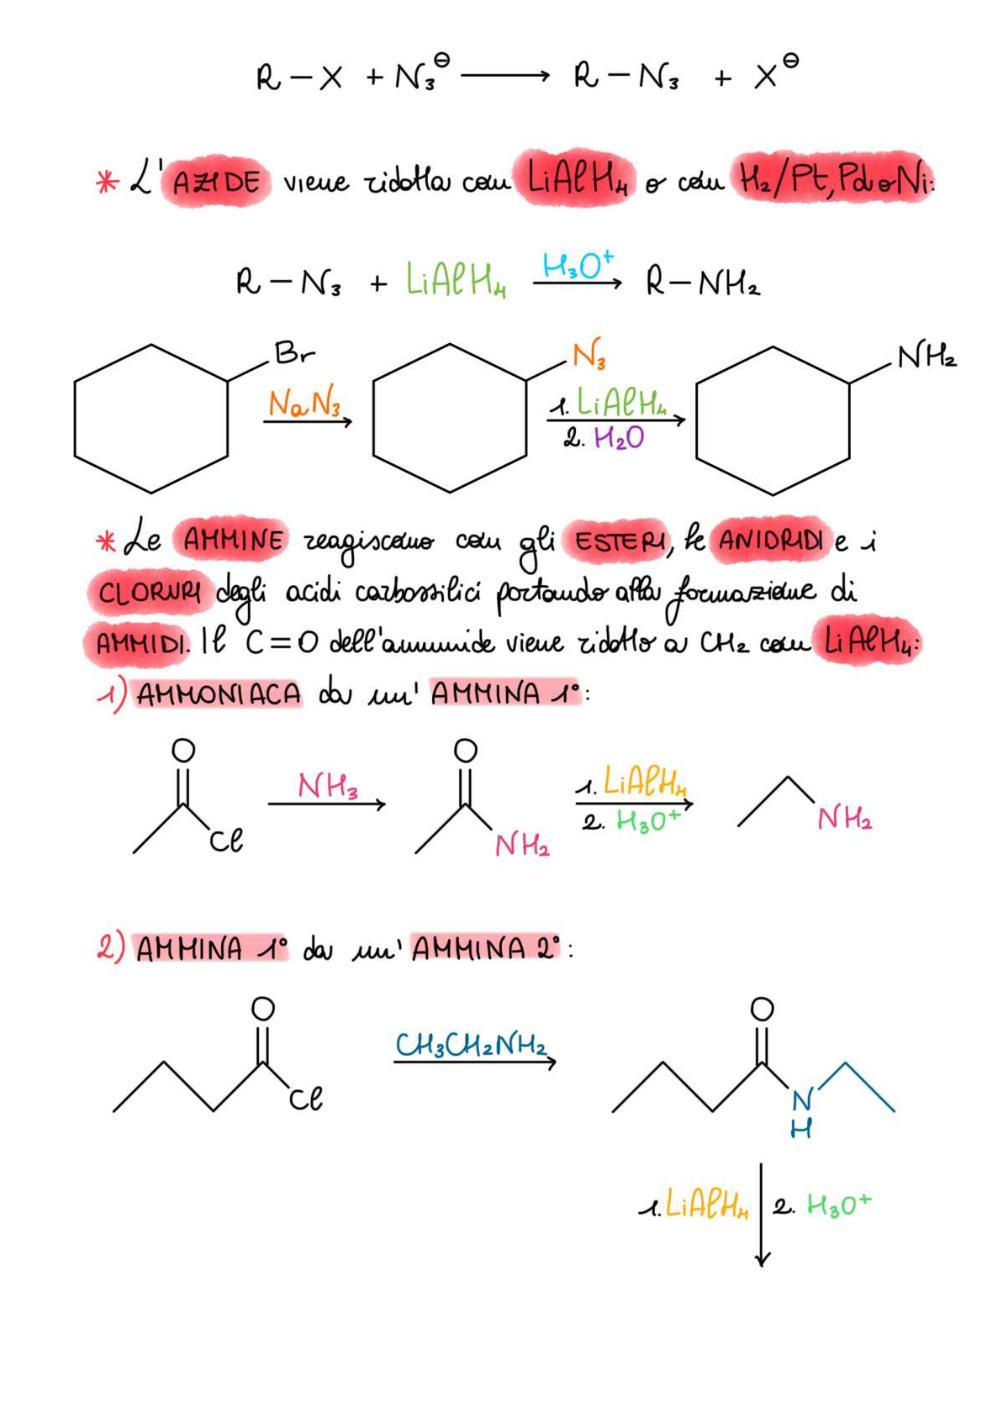 R-X + N₃⊖ → R-N₃ + X⊖
* L'AZIDE viene ridotta con LiAlH₄ o con H₂/Pt, Pd o Ni:
R-N₃ + LiAlH₄ H₃O⁺→ R-NH₂
Br NaN₃ → N₃ 1. LiAlH₄ 2. H₂O → NH₂
* Le AMMINE reagiscono con gli ESTERI, le ANIDRIDI e i
CLORURI degli acidi carbossilici portando alla formazione di
AMMIDI. Il C=O dell'ammide viene ridotto a CH₂ con LiAlH₄:
1) AMMONIACA da un' AMMINA 1°:
O Cl NH₃ → O NH₂ 1. LiAlH₄ 2. H₃O⁺ → NH₂
2) AMMINA 1° da un' AMMINA 2°:
O Cl CH₃CH₂NH₂ → O N H
1. LiAlH₄ 2. H₃O⁺